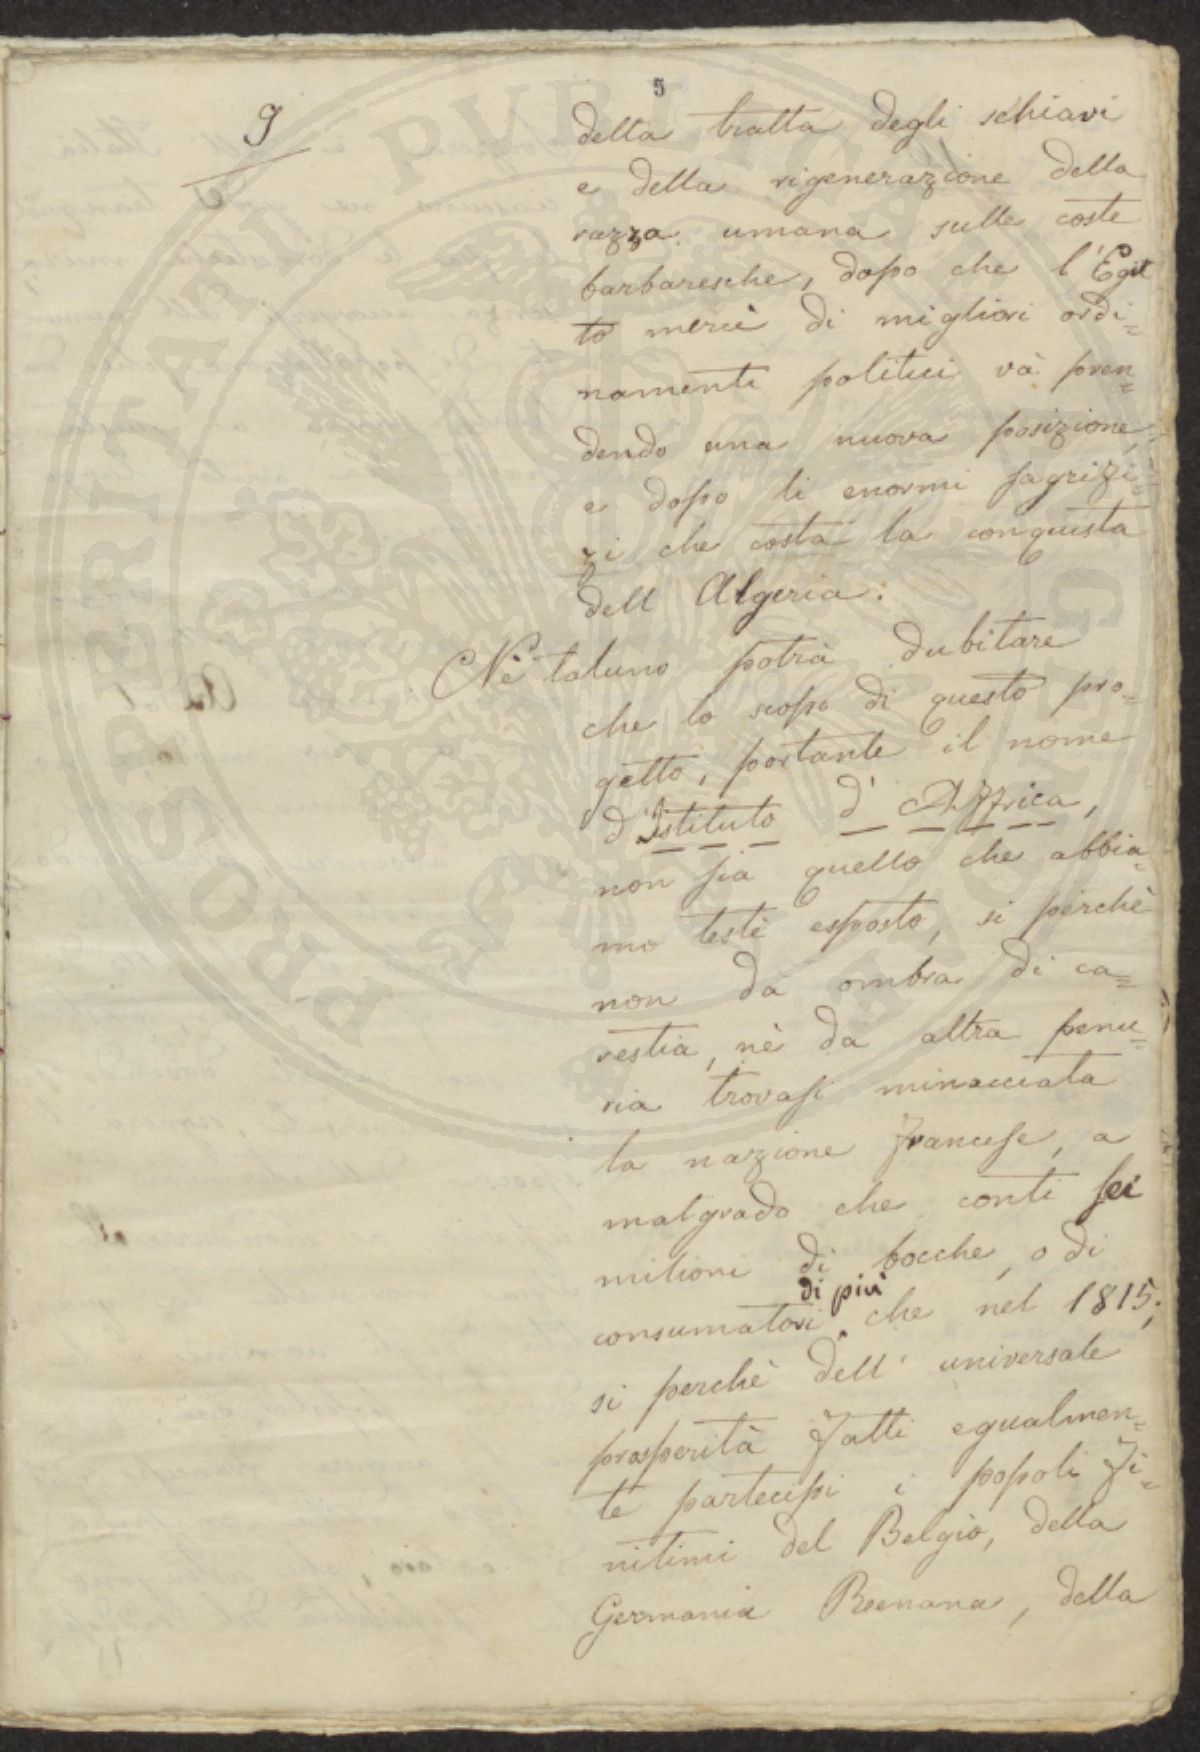 5
9
della tratta degli schiavi
e della rigenerazione della
razza umana sulle coste
barbaresche, dopo che l'Egit
to mercè di migliori ordi=
namenti politici và pren=
dendo una nuova posizione,
e dopo li enormi sagrizi=
zi che costa la conquista
dell Algeria:
Nè taluno potrà dubitare
che lo scopo di questo pro=
getto, portante il nome
d'Istituto d'Affrica,
non sia quello che abbia=
mo testè esposto, si perchè
non da ombra di ca=
restia, nè da altra penu=
ria trovasi minacciata
la nazione francese, a
malgrado che conti sei
milioni di bocche, o di
consumatori di più che nel 1815;
si perchè dell' universale
prosperità fatti egualmen=
te partecipi i popoli fi=
nitimi del Belgio, della
Germania Reenana, della
PROSPERITATI PVBLICAE